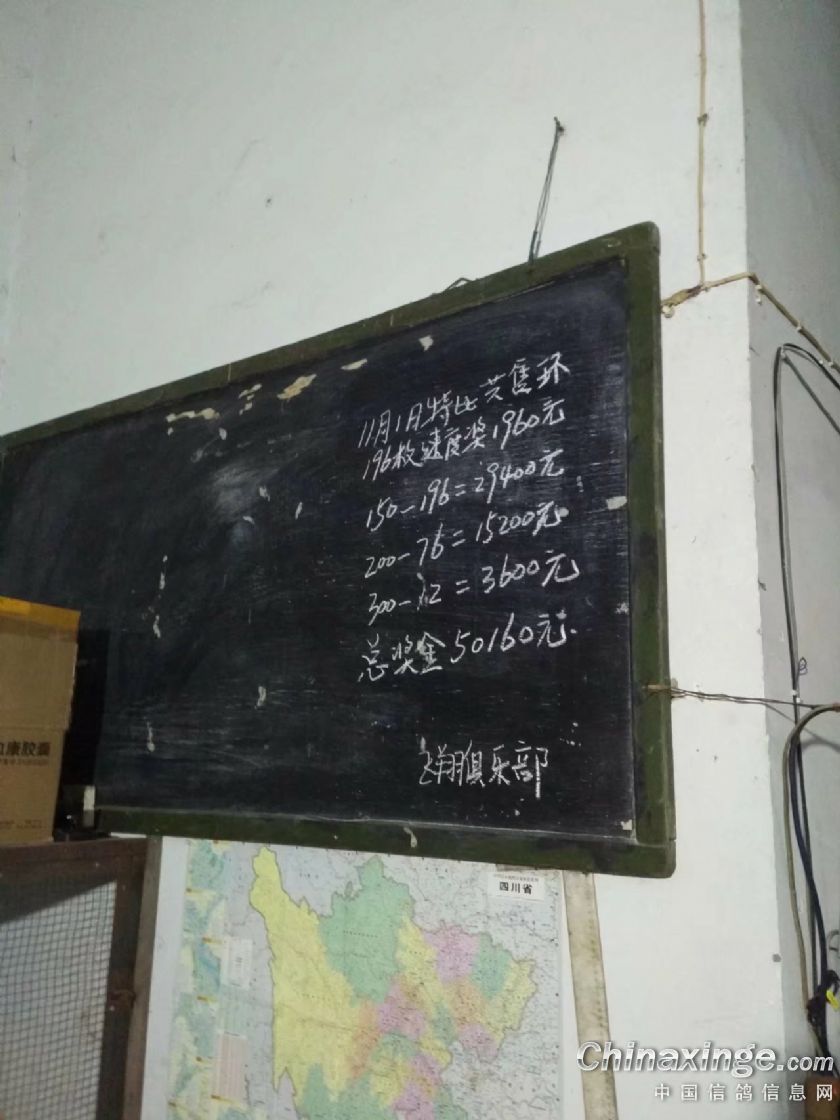 11月1日特比共售环
196枚速度奖1960元
150-196=29400元
200-76=15200元
300-12=3600元
总奖金50160元.
飞翔俱乐部
康胶囊
四川省
Chinaxinge.com
中国信鸽信息网